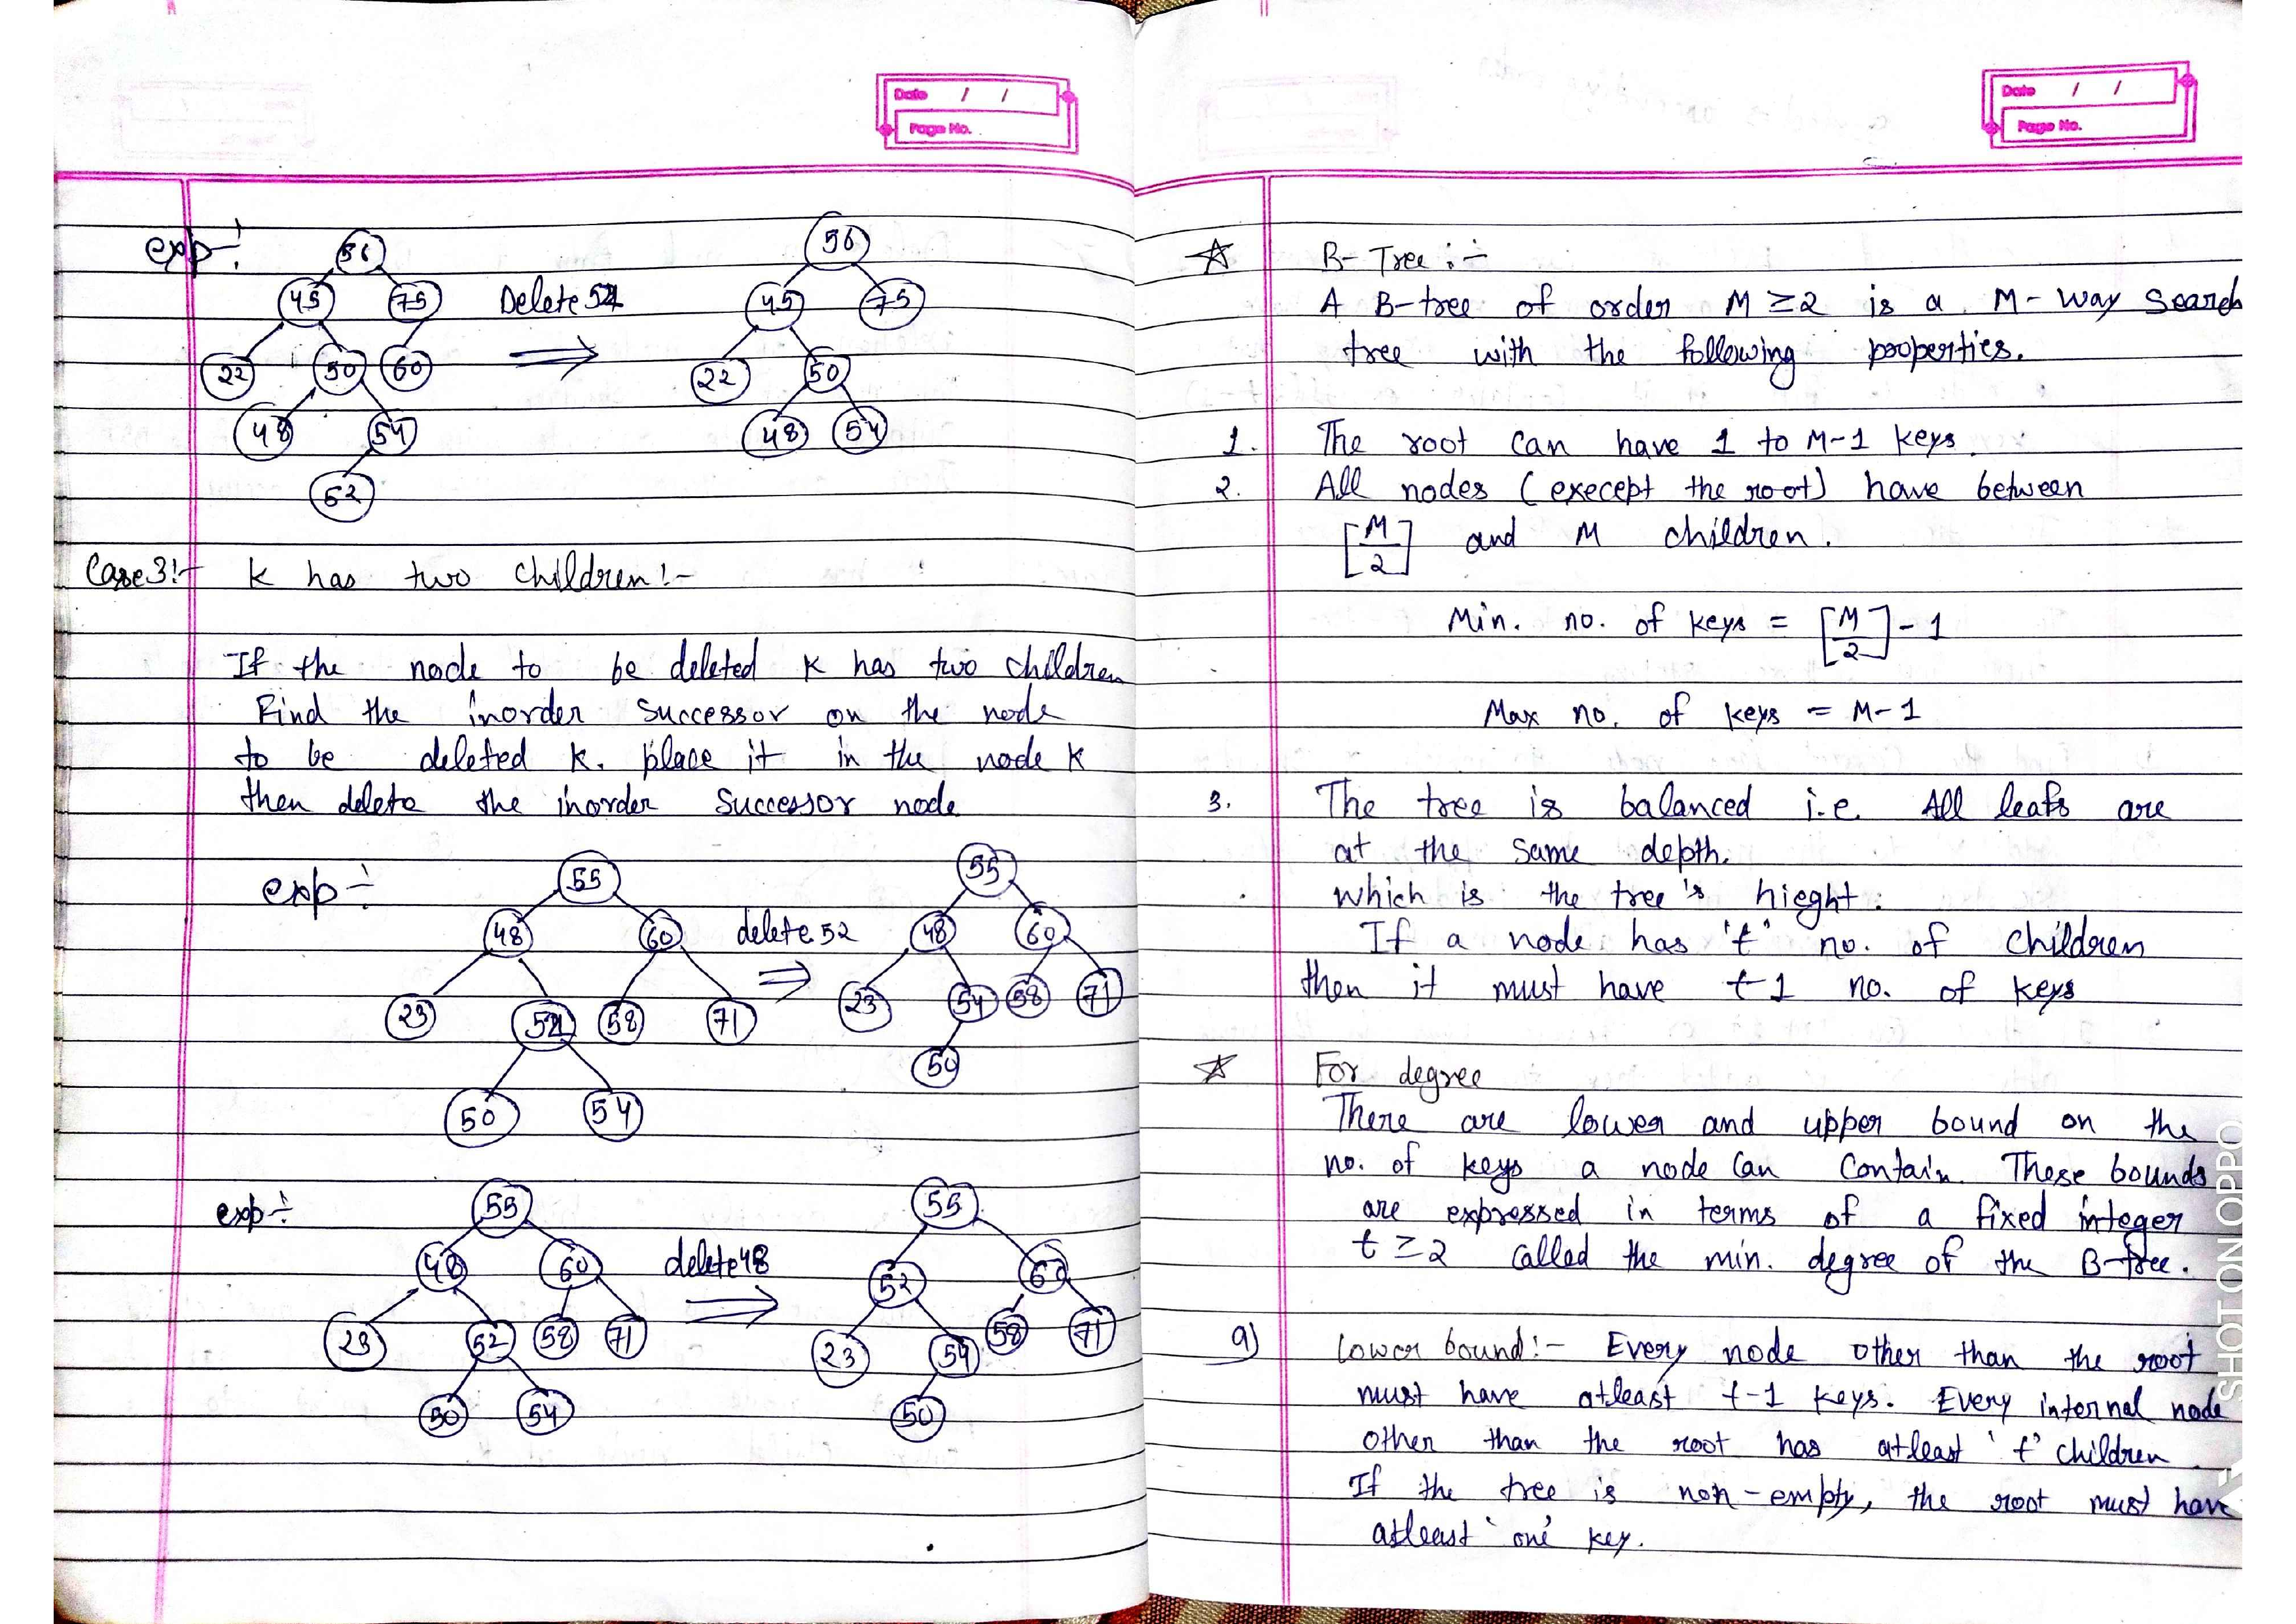 Date / /
Page No.
exp-:
56
45 75
22 50 60
48 54
52
Delete 52
56
45 75
22 50
48 54
Case 3:- K has two children:-
If the node to be deleted K has two children
Find the inorder successor on the node
to be deleted K. place it in the node K
then delete the inorder successor node.
exp ÷
55
48 60
23 52 58 71
50 54
delete 52
55
48 60
23 54 58 71
50
exp ÷
55
48 60
23 52 58 71
50 54
delete 48
55
52 60
23 54 58 71
50
Date / /
Page No.
☆ B-Tree :-
A B-tree of order M ≥ 2 is a M-way search
tree with the following properties.
1. The root can have 1 to M-1 keys.
2. All nodes (execept the root) have between
[M/2] and M children.
Min. no. of keys = [M/2] - 1
Max no. of keys = M-1
3. The tree is balanced i.e. All leafs are
at the same depth.
which is the tree's hieght.
If a node has 't' no. of children
then it must have t-1 no. of keys
☆ For degree
There are lower and upper bound on the
no. of keys a node can contain. These bounds
are expressed in terms of a fixed integer
t ≥ 2 called the min. degree of the B-tree.
a) Lower bound:- Every node other than the root
must have atleast t-1 keys. Every internal node
other than the root has atleast 't' children.
If the tree is non-empty, the root must have
atleast 'one' key.
SHOT ON OPPO